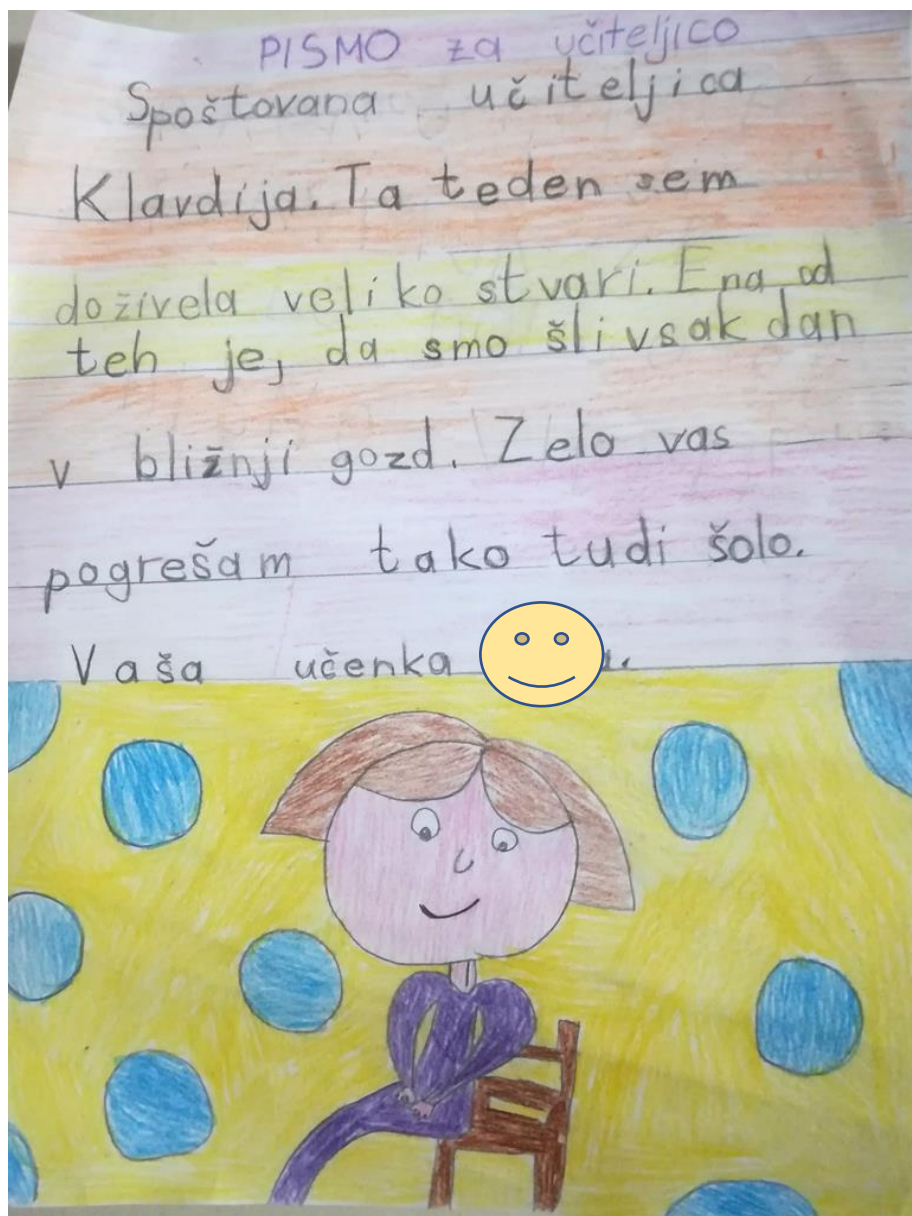 PISMO za učiteljico
Spoštovana učiteljica
Klavdija. Ta teden sem
doživela veliko stvari. Ena od
teh je, da smo šli vsak dan
v bližnji gozd. Zelo vas
pogrešam tako tudi šolo.
Vaša učenka